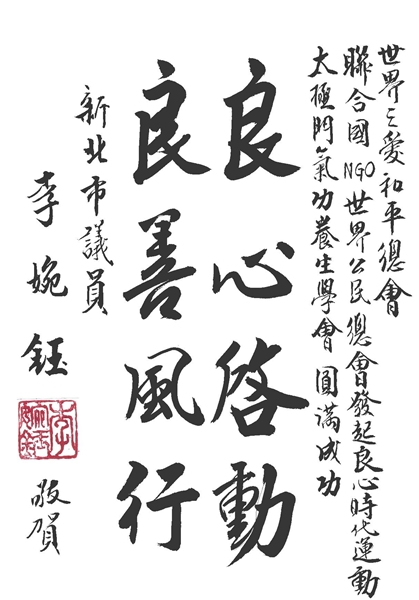 世界之愛和平總會
聯合國NGO世界公民總會發起良心時代運動
太極門氣功養生學會 圓滿成功
良心啓動
良善風行
新北市議員
李婉鈺
敬賀